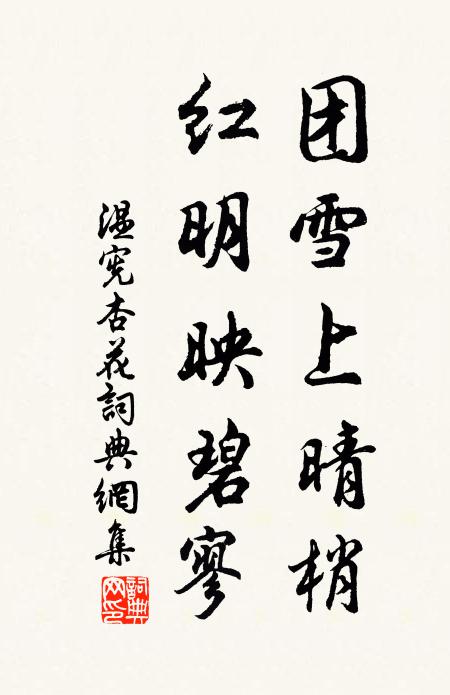 团雪上晴梢
红明映碧寥
温宪杏花詞典網集
詞典网印